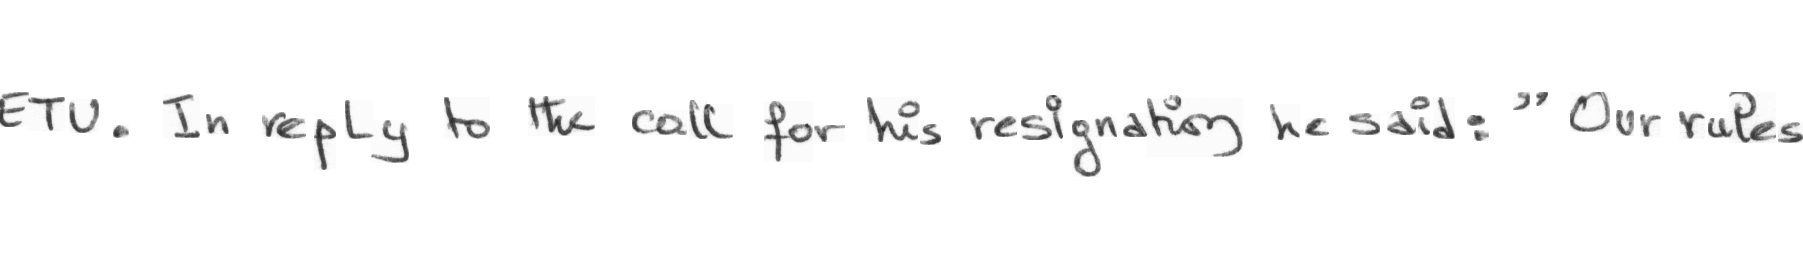 ETU. In reply to the call for his resignation he said: " Our rules